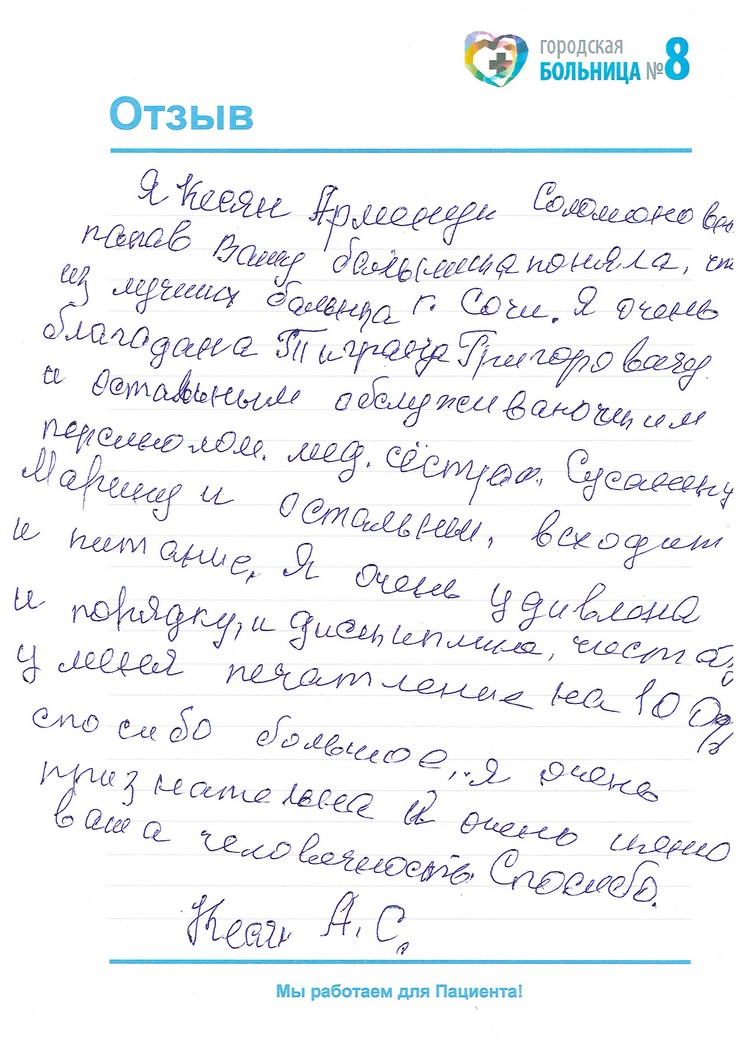 городская
БОЛЬНИЦА №8
Отзыв
Я Кесян Арменуи Соломоновн
папав Вашу больница поняла, чт
из лучших больница г. Сочи. Я очень
благодана Тиграна Григоровачу
и остальным обслуживаночщим
персинолом. мед. сёстрам. Сусанну
Марину и остальным, всходит
и питание, Я очень удивлона
и порядку, и дисциплина, чистаба,
у меня печатление на 100%
спосибо большое, я очень
признательна и очень ценю
ваша человечность Спосибо.
Кесян А. С.
Мы работаем для Пациента!